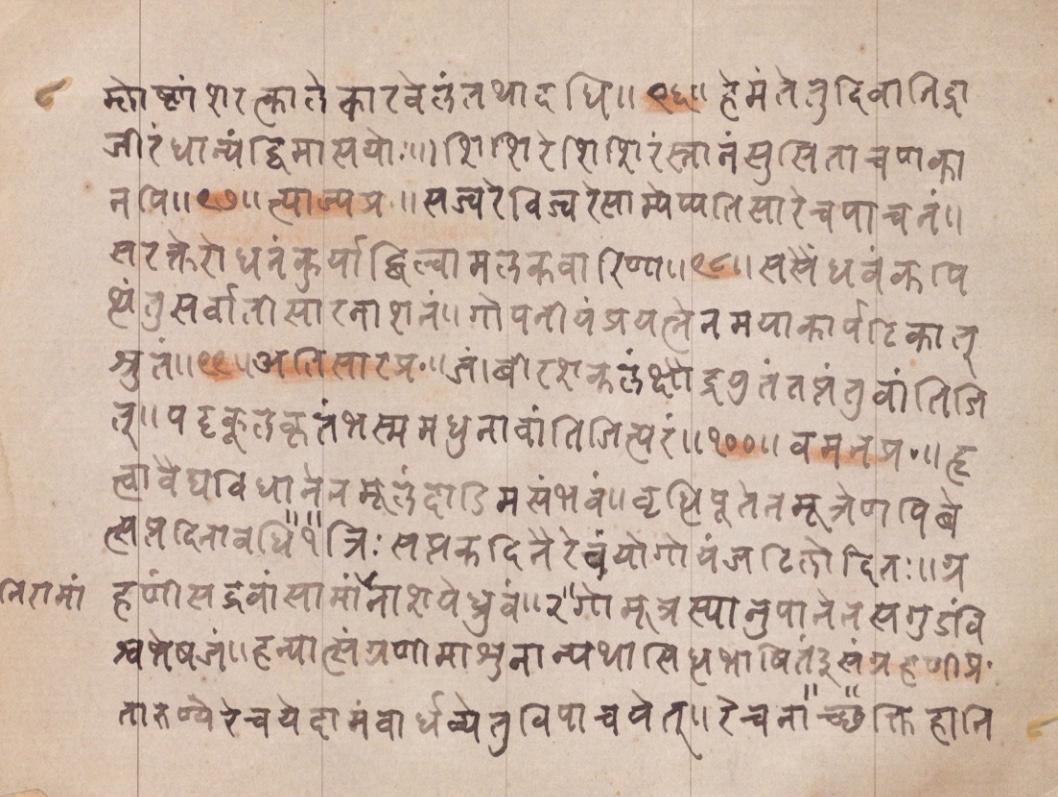 म्लोष्णं शरत्काले कारवेलं तथा दधि॥ ९६॥ हेमंते तु दिवा निद्रा
जीरं धान्यं द्विमासयोः॥ शिशिरे शिशिरं स्नानं सुसिता चणका
नपि॥ ९७॥ त्याज्यप्र॥ सज्वरे विज्वरे साम्येप्यतिसारे च पाचनं॥
सरक्ते रोधनं कुर्याद्बिल्वामलकवारिणा॥ ९८॥ ससैंधवं कपि
त्थं तु सर्वातीसारनाशनं॥ गोपनीयं प्रयत्नेन मया कार्पटिकात्
श्रुतं॥ ९९॥ अतिसारप्र॰॥ जंबीरशकलं क्षौद्रयुतं तप्तं तु वांतिजि
त्॥ पट्टकूलकृतं भस्म मधुना वांतिजित्परं॥ १००॥ वमनप्र॰॥ हृ
त्वा वैद्यविधानेन मूलं दाडिमसंभवं॥ वृषिपूतेन मूत्रेण पिबे
त्सप्तदिनावधि॥ १॥ त्रिः सप्तकदिनैरेवं योगोयं जटिलोदितः॥ ग्र
हणीं सद्रवां सामां नाशये ध्रुवं॥ २॥ गोमूत्रस्यानुपानेन सगुडं वि
नितामां
श्वभेषजं॥ हन्यात्संग्रणीमाश्रु नान्यथा सिद्धभाषितं ३ संग्रहणीप्र॰
तारुण्ये रेचयेदामं वार्धक्ये तु विपाचयेत्॥ रेचनाच्छक्तिहानि